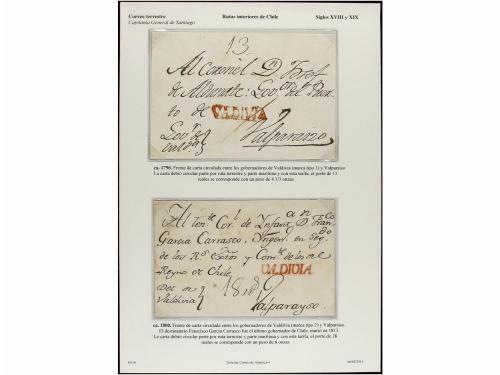 Correo terrestre Rutas interiores de Chile Siglos XVIII y XIX
Capitanía General de Santiago
13
Al Coronel Dn. Josef
de Alvarado: Gov.or del Puer
to de
VALDIVIA
Valparaizo
Gov.r
ca. 1790. Frente de carta circulada entre los gobernadores de Valdivia (marca tipo 1) y Valparaíso
La carta debió circular parte por ruta terrestre y parte marítima y con esta tarifa, el porte de 13
reales se corresponde con un peso de 4 1/3 onzas
Al Ten.te Cor.l de Infant.a Dn. Fran.co
Garcia Carrasco, Yngen.
de los R.s Extos y
Reyno de Chile,
VALDIVIA
Del
18
Valdivia
Valparayso.
ca. 1800. Frente de carta circulada entre los gobernadores de Valdivia (marca tipo 2) y Valparaíso.
El destinatario Francisco García Carrasco fue el último gobernador de Chile, murió en 1813.
La carta debió circular parte por ruta terrestre y parte marítima y con esta tarifa, el porte de 18
reales se corresponde con un peso de 6 onzas